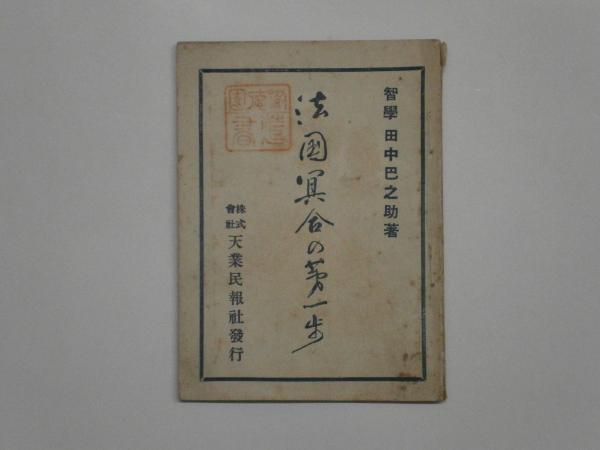 智學 田中巴之助著
法國冥合の第一歩
株式會社 天業民報社發行